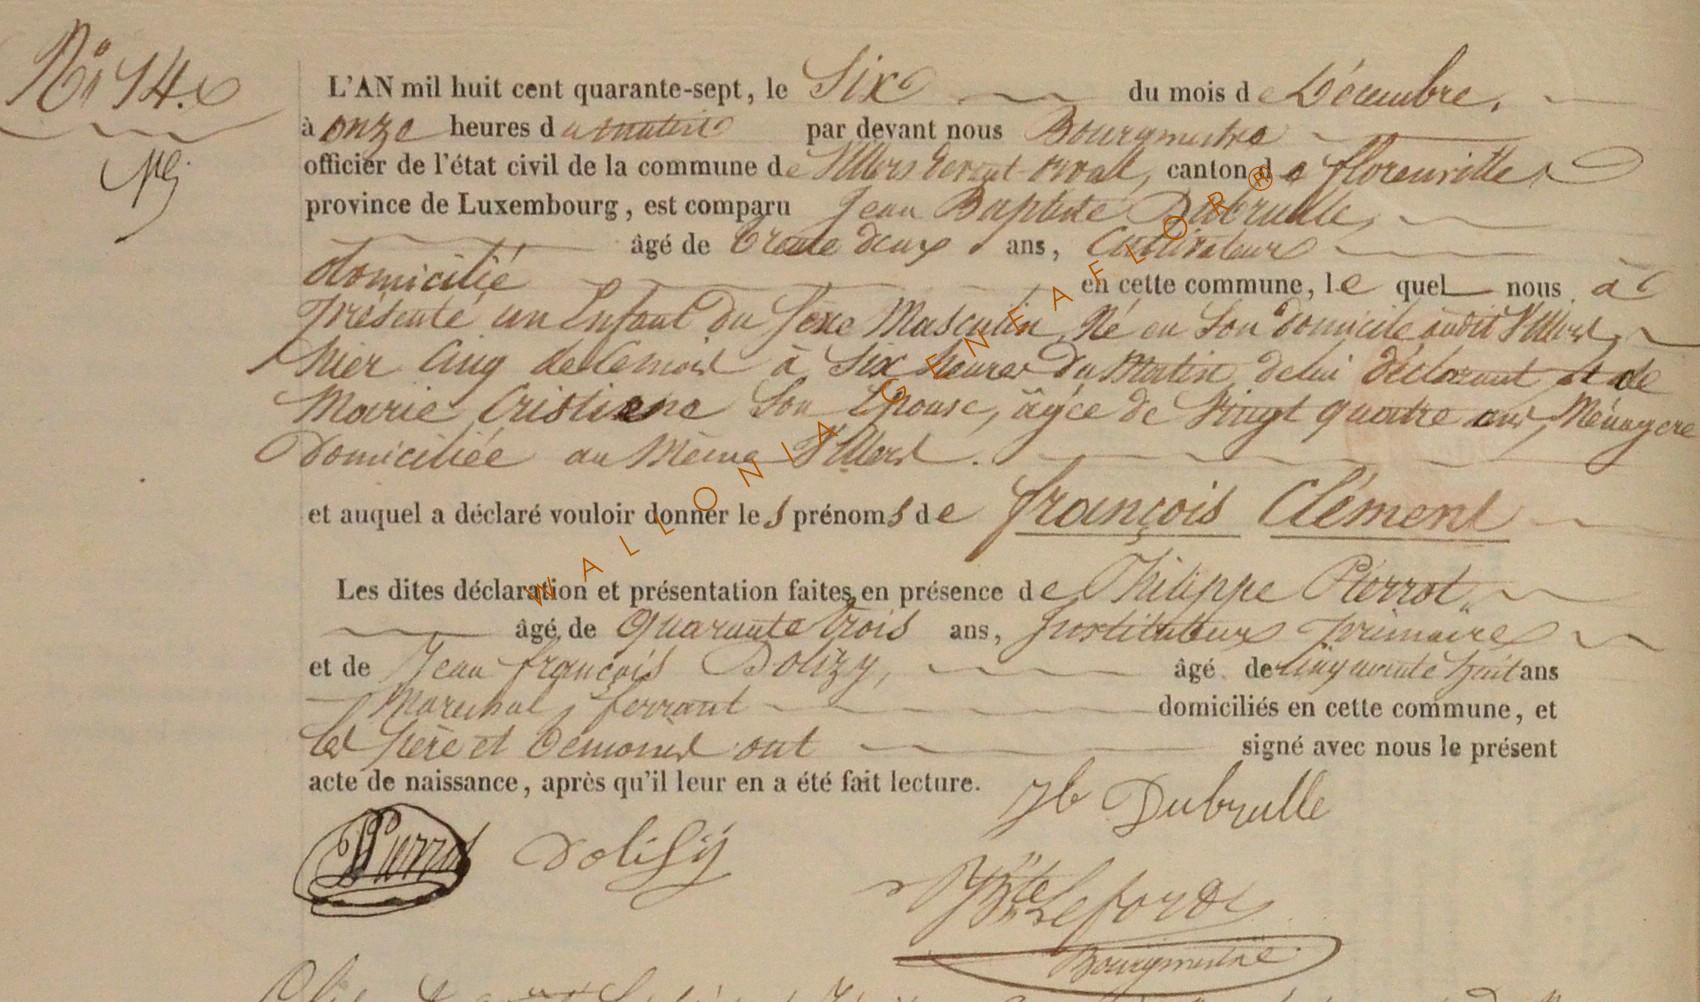 N° 14.
L'AN mil huit cent quarante-sept, le Six du mois de Décembre,
à onze heures du matin par devant nous Bourgmestre
officier de l'état civil de la commune de Villers devant orval, canton de florenville
province de Luxembourg, est comparu Jean Baptiste Dubrulle,
âgé de trente deux ans, Cultivateur
domicilié en cette commune, lequel nous a
présenté un Enfant du Sexe Masculin, Né en Son domicile audit Villers,
hier Cinq de ce mois à Six heures du Matin, de lui déclarant et de
Marie Cristiene Son Epouse, âgée de Vingt quatre ans, Ménagere
Domiciliée au Même Villers.
et auquel a déclaré vouloir donner les prénoms de françois Clément
Les dites déclaration et présentation faites en présence de Philippe Pierrot,
âgé de Quarante trois ans, Instituteur primaire
et de Jean françois Dolizy, âgé de cinquante huit ans
Marechal ferrant domiciliés en cette commune, et
les père et témoins ont signé avec nous le présent
acte de naissance, après qu'il leur en a été fait lecture.
Jb Dubrulle
Pierrot Dolisy
Bourgmestre
WALLONIA GENEAFLOR®